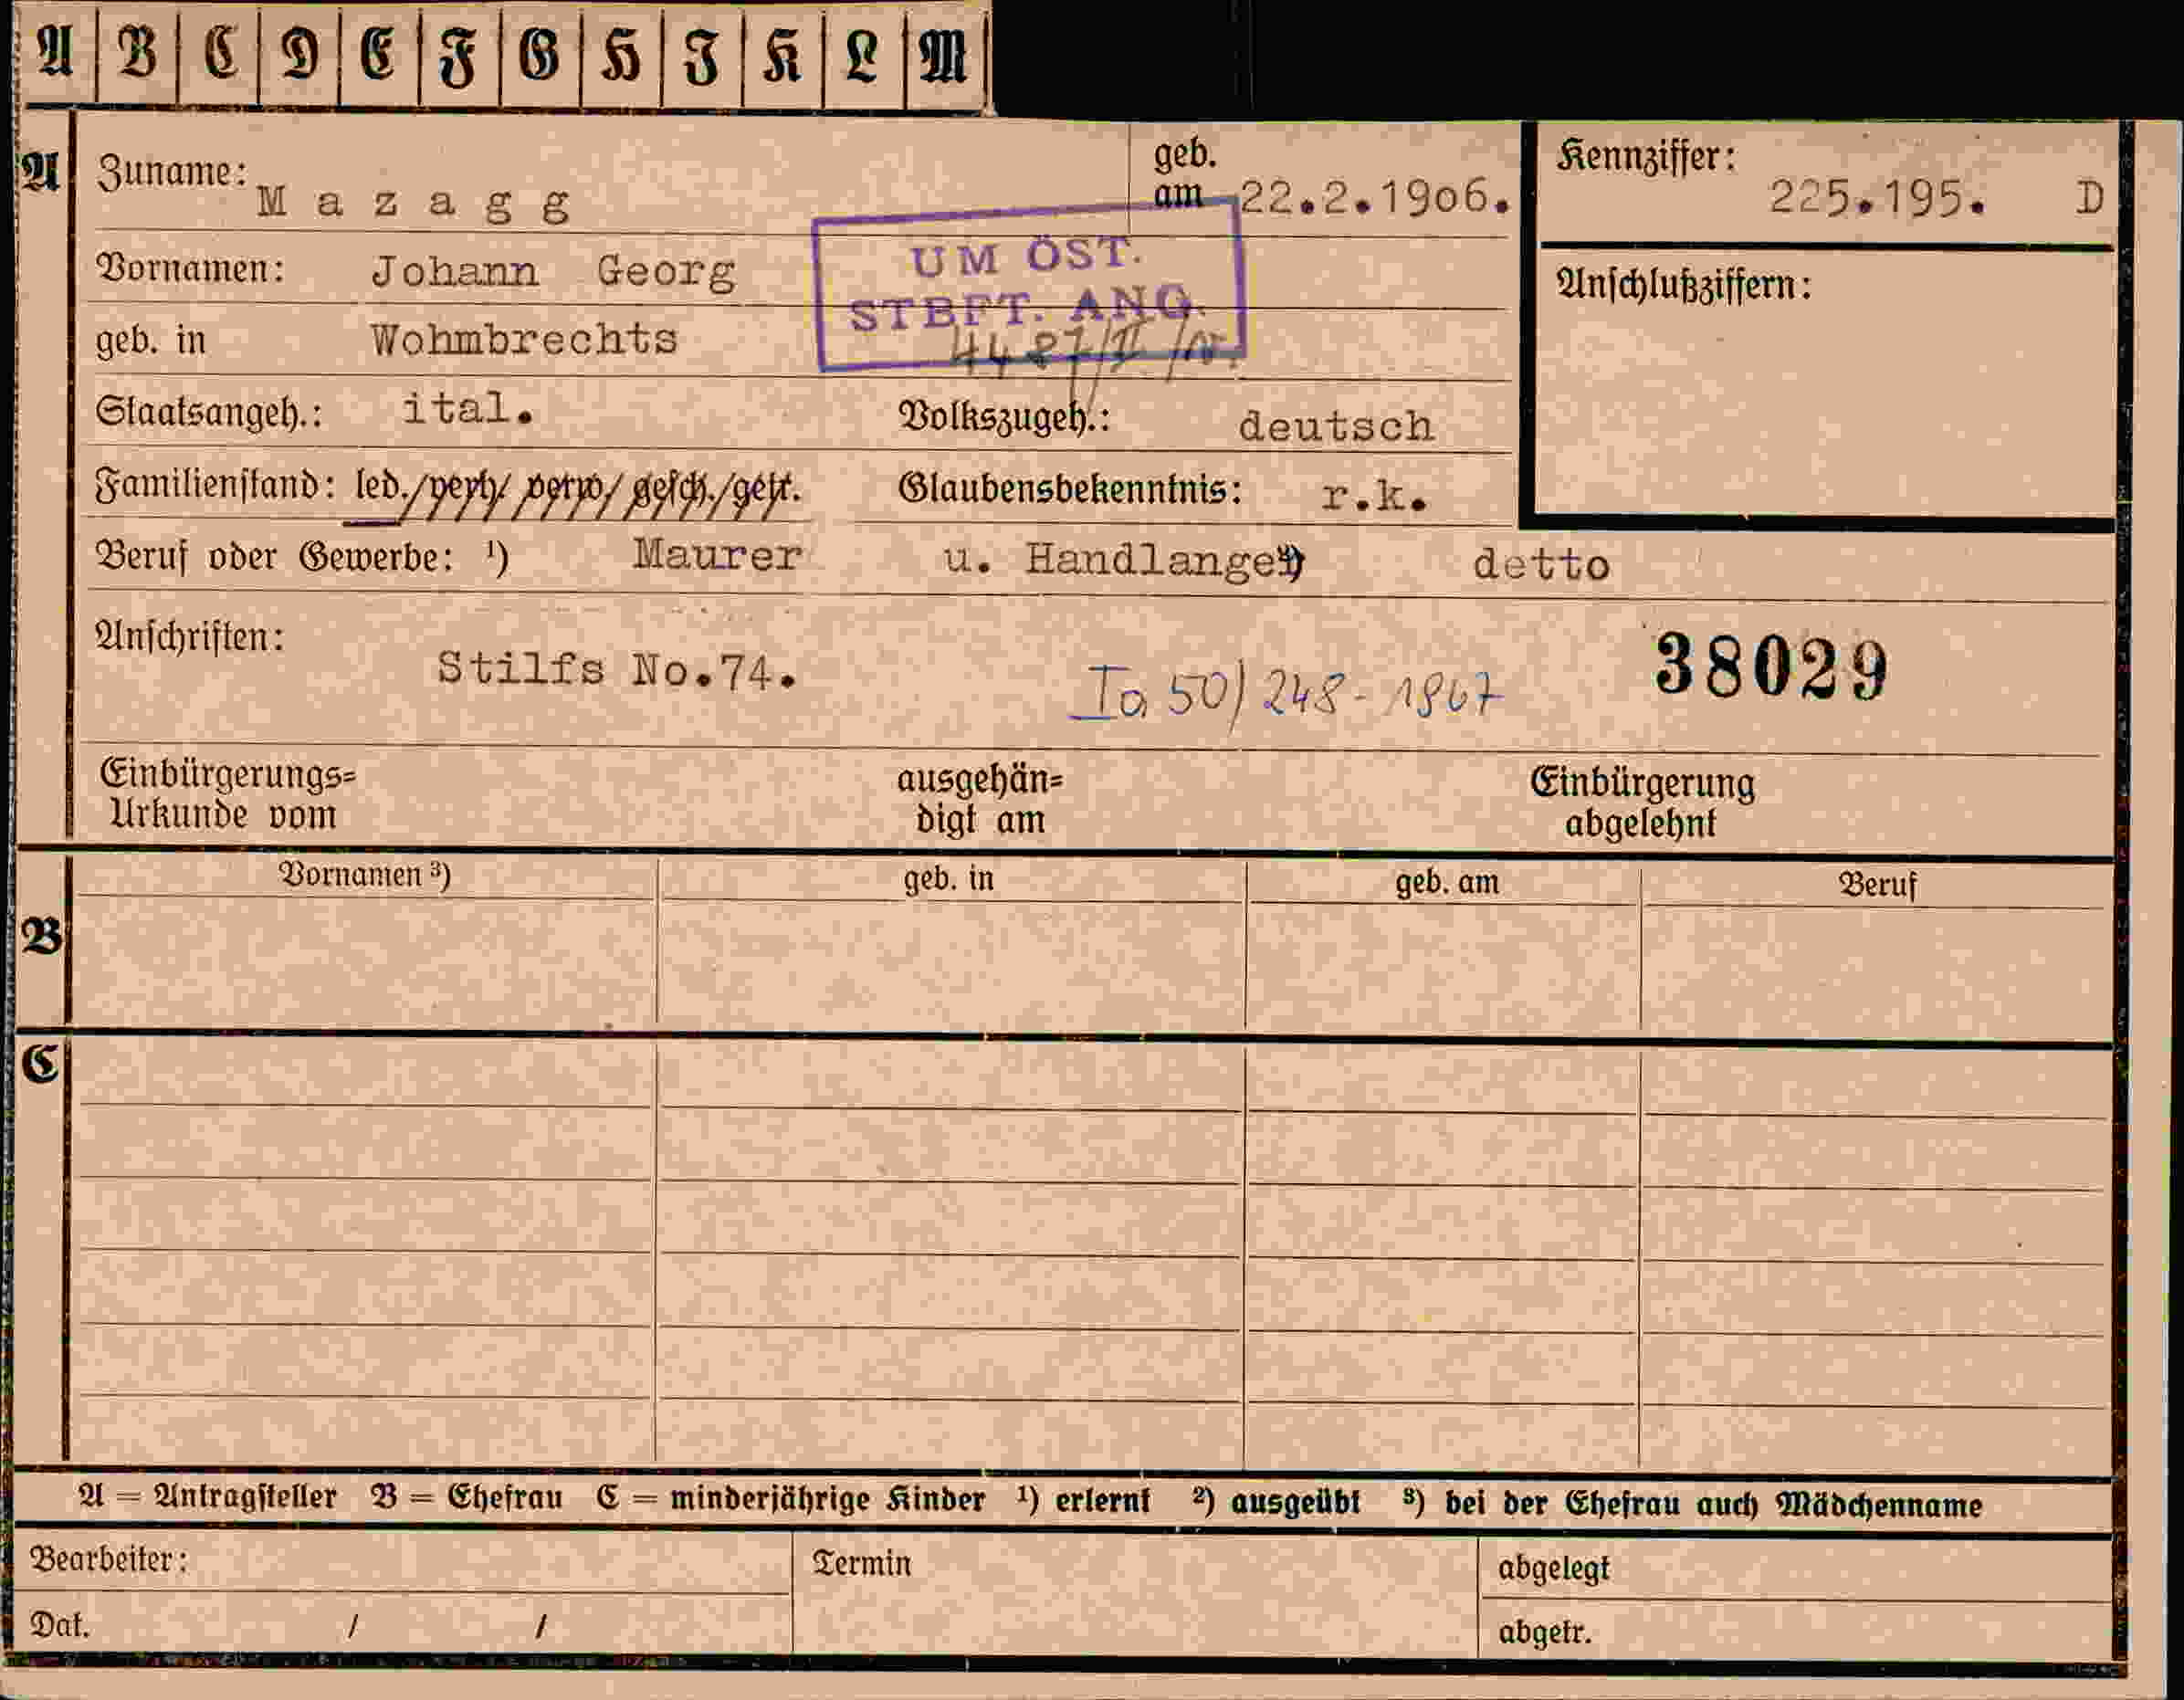 A B C D E F G H I K L M
A Zuname: Mazagg geb. am 22.2.1906. Kennziffer: 225.195. D
UM ÖST.
STBFT. ANG.
Vornamen: Johann Georg
Anschlußziffern:
geb. in Wohmbrechts
Staatsangeh.: ital. Volkszugeh.: deutsch
Familienstand: led./verh/ verw/ gesch./getr. Glaubensbekenntnis: r.k.
Beruf oder Gewerbe: ¹) Maurer u. Handlanger ²) detto
Anschriften: Stilfs No.74. Ia 50/248-1967 38029
Einbürgerungs= ausgehän= Einbürgerung
Urkunde vom digt am abgelehnt
Vornamen ³) geb. in geb. am Beruf
B
C
A = Antragsteller B = Ehefrau C = minderjährige Kinder ¹) erlernt ²) ausgeübt ³) bei der Ehefrau auch Mädchenname
Bearbeiter: Termin abgelegt
Dat. / / abgetr.